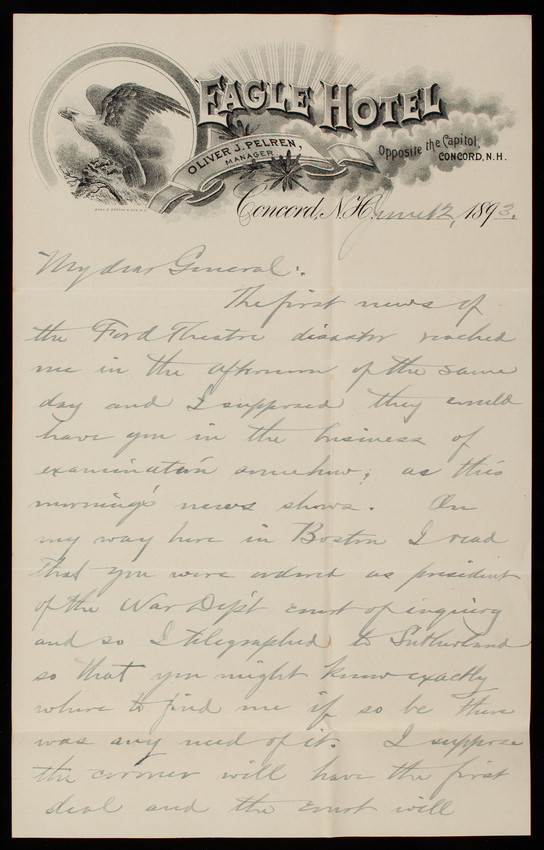 EAGLE HOTEL
OLIVER J. PELREN,
MANAGER
Opposite the Capitol,
CONCORD, N.H.
Concord, N.H. June 12, 1893.
My dear General:.
The first news of
the Ford Theatre disaster reached
me in the afternoon of the same
day and I supposed they would
have you in the business of
examination somehow; as this
morning's news shows. On
my way here in Boston I read
that you were ordered as president
of the War Dep't court of inquiry
and so I telegraphed to Sutherland
so that you might know exactly
where to find me if so be there
was any need of it. I suppose
the coroner will have the first
deal and the court will